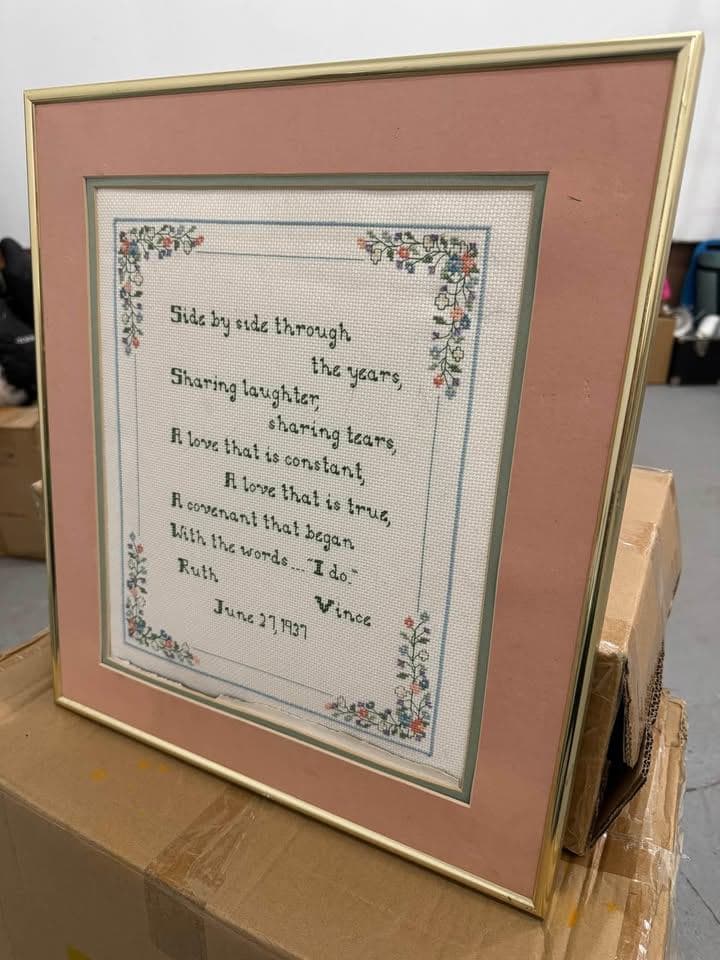 Side by side through
the years,
Sharing laughter,
sharing tears,
A love that is constant,
A love that is true,
A covenant that began
With the words... "I do."
Ruth
Vince
June 27, 1937